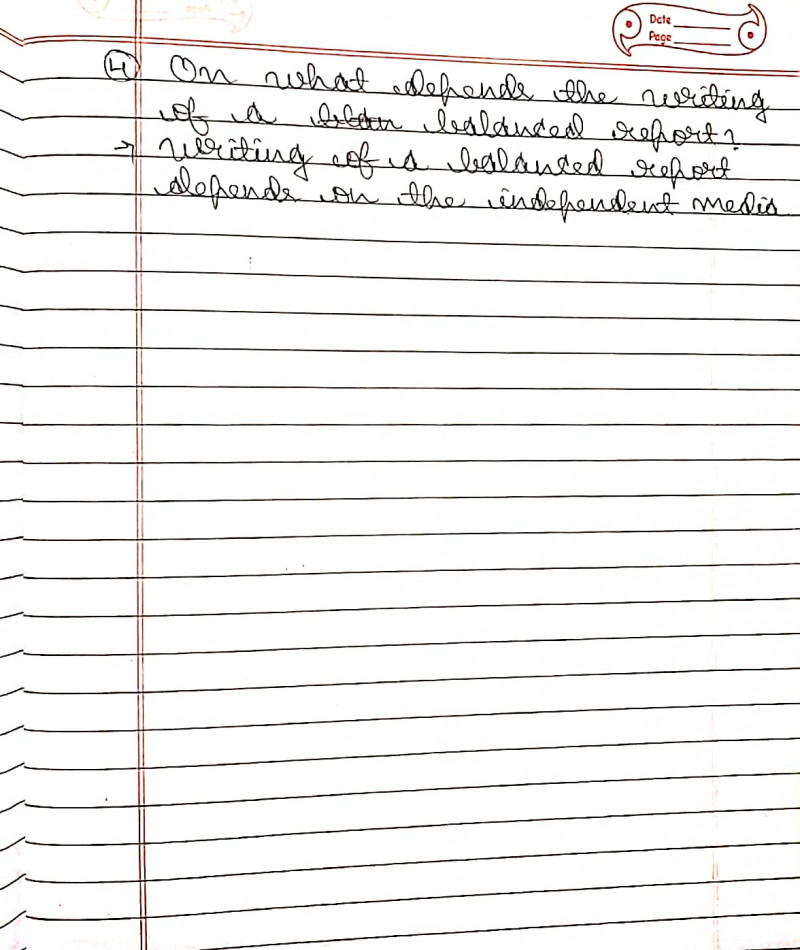 Date
Page
④ On what depends the writing
of a balanced report?
→ Writing of a balanced report
depends on the independent media